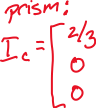 prism:
I_c = [2/3
0
0